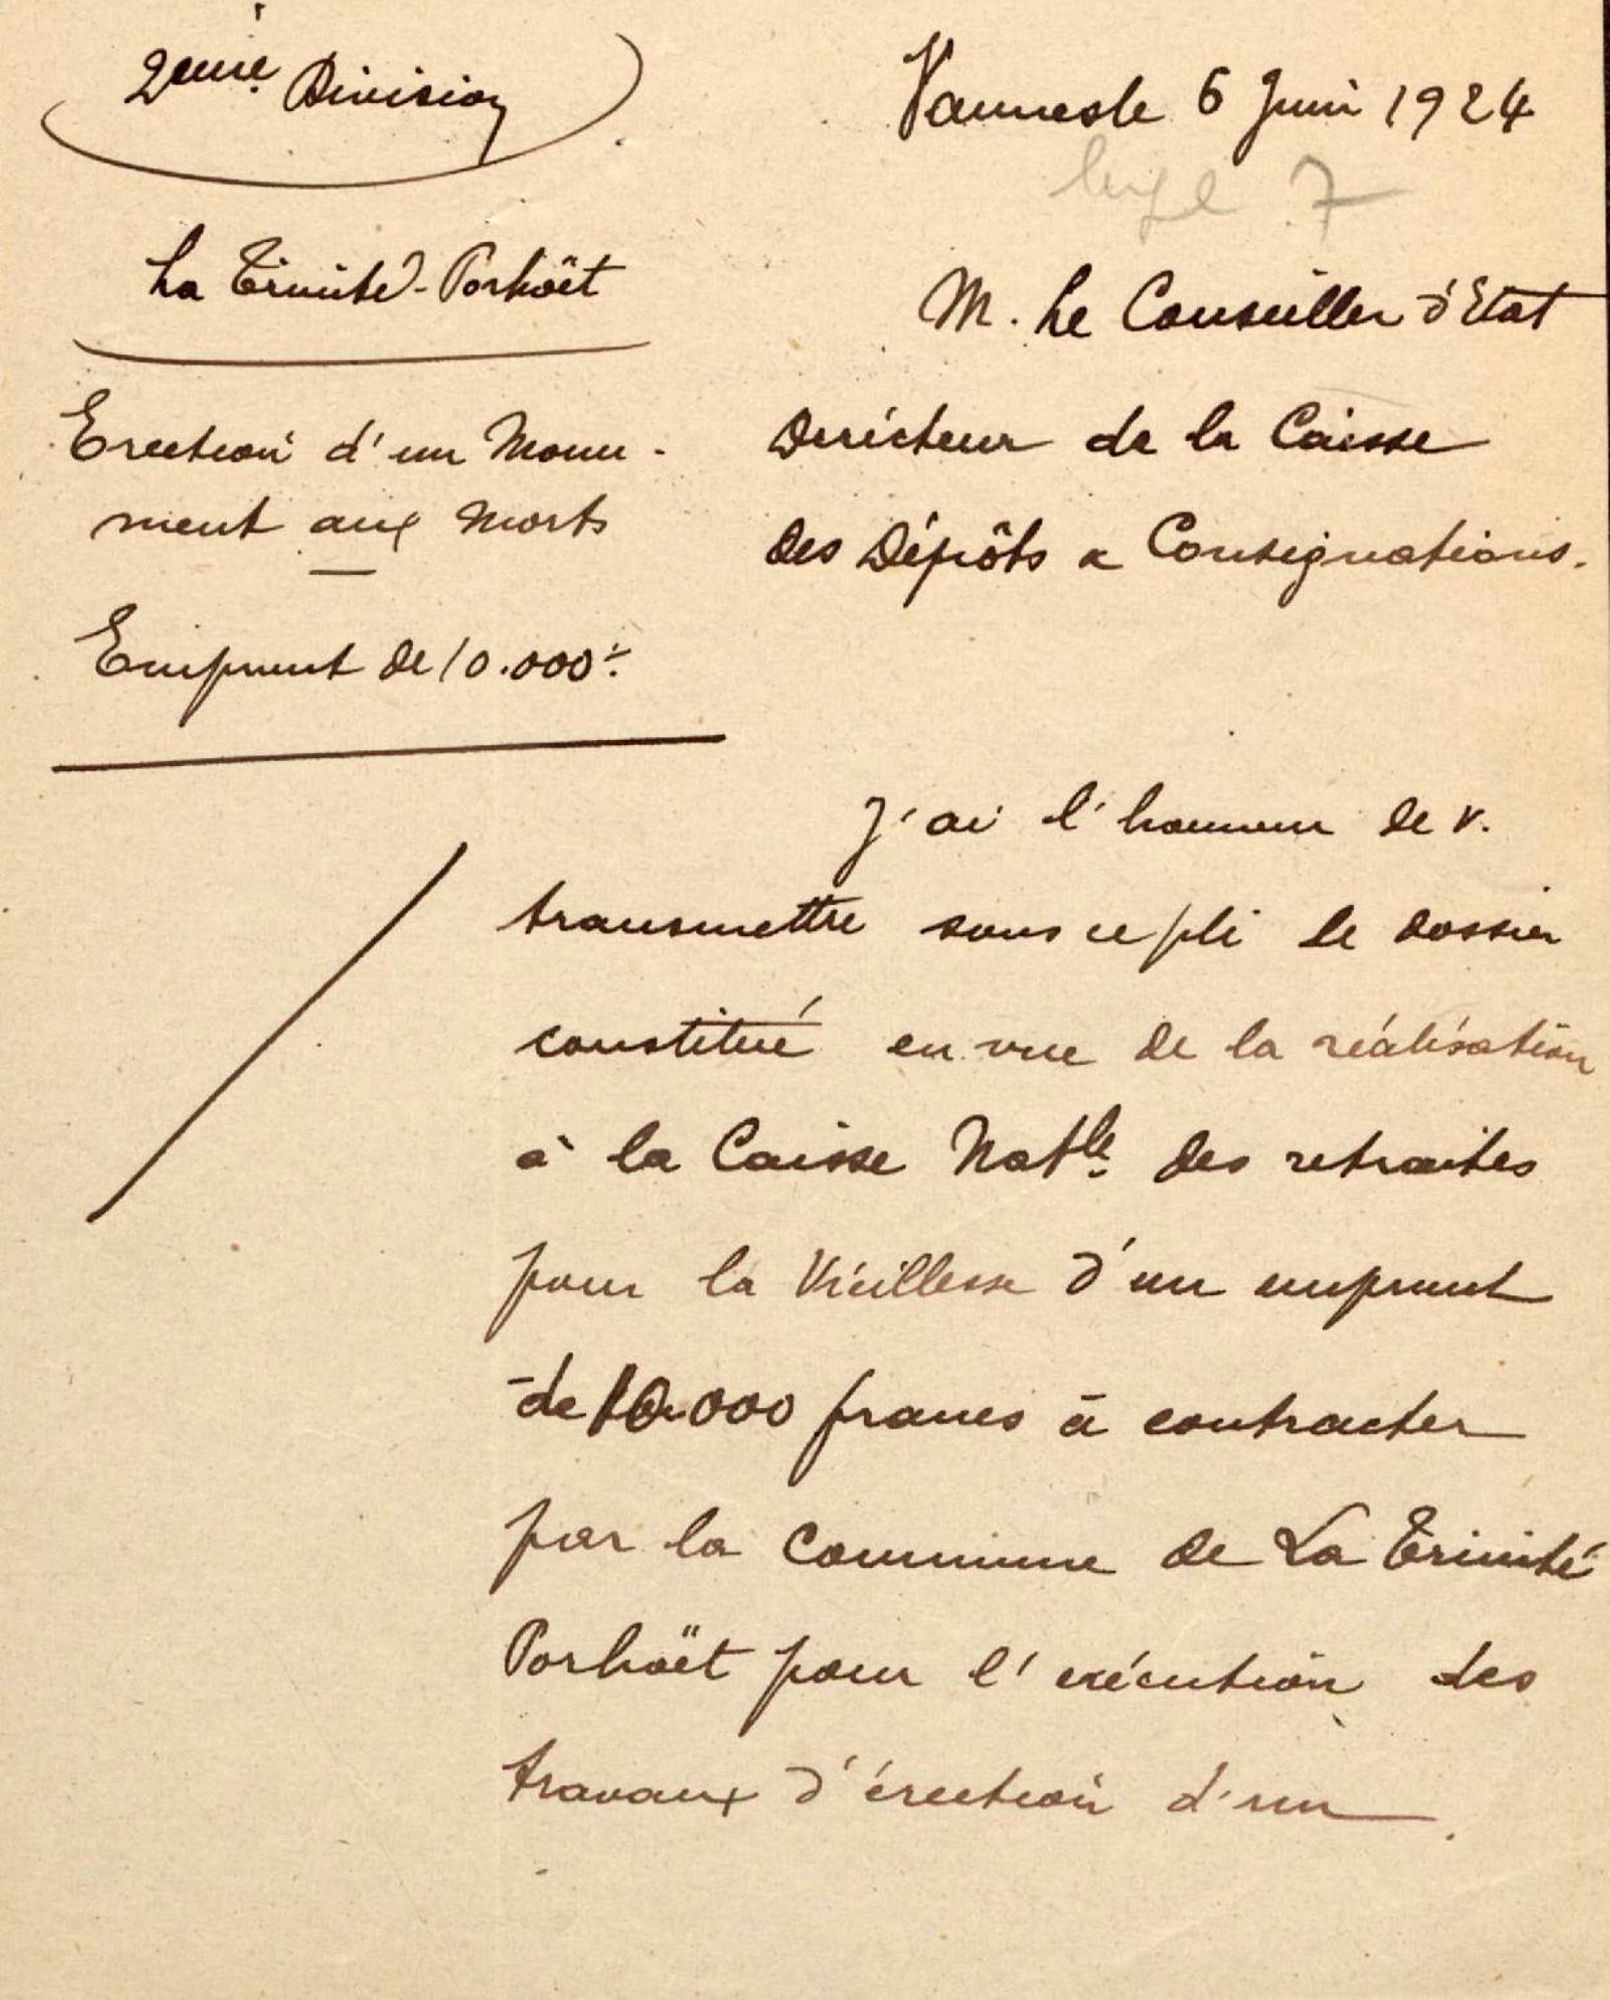 2ème Division
La Trinité-Porhoët
Erection d'un Monu-
ment aux Morts
Emprunt de 10.000f.
Vannes le 6 Juin 1924
7
M. Le Conseiller d'Etat
Directeur de la Caisse
des Dépôts & Consignations.
J'ai l'honneur de v.
transmettre sous ce pli le dossier
constitué en vue de la réalisation
à la Caisse Natle des retraites
pour la Vieillesse d'un emprunt
de 10.000 francs à contracter
par la Commune de La Trinité
Porhoët pour l'exécution des
travaux d'érection d'un